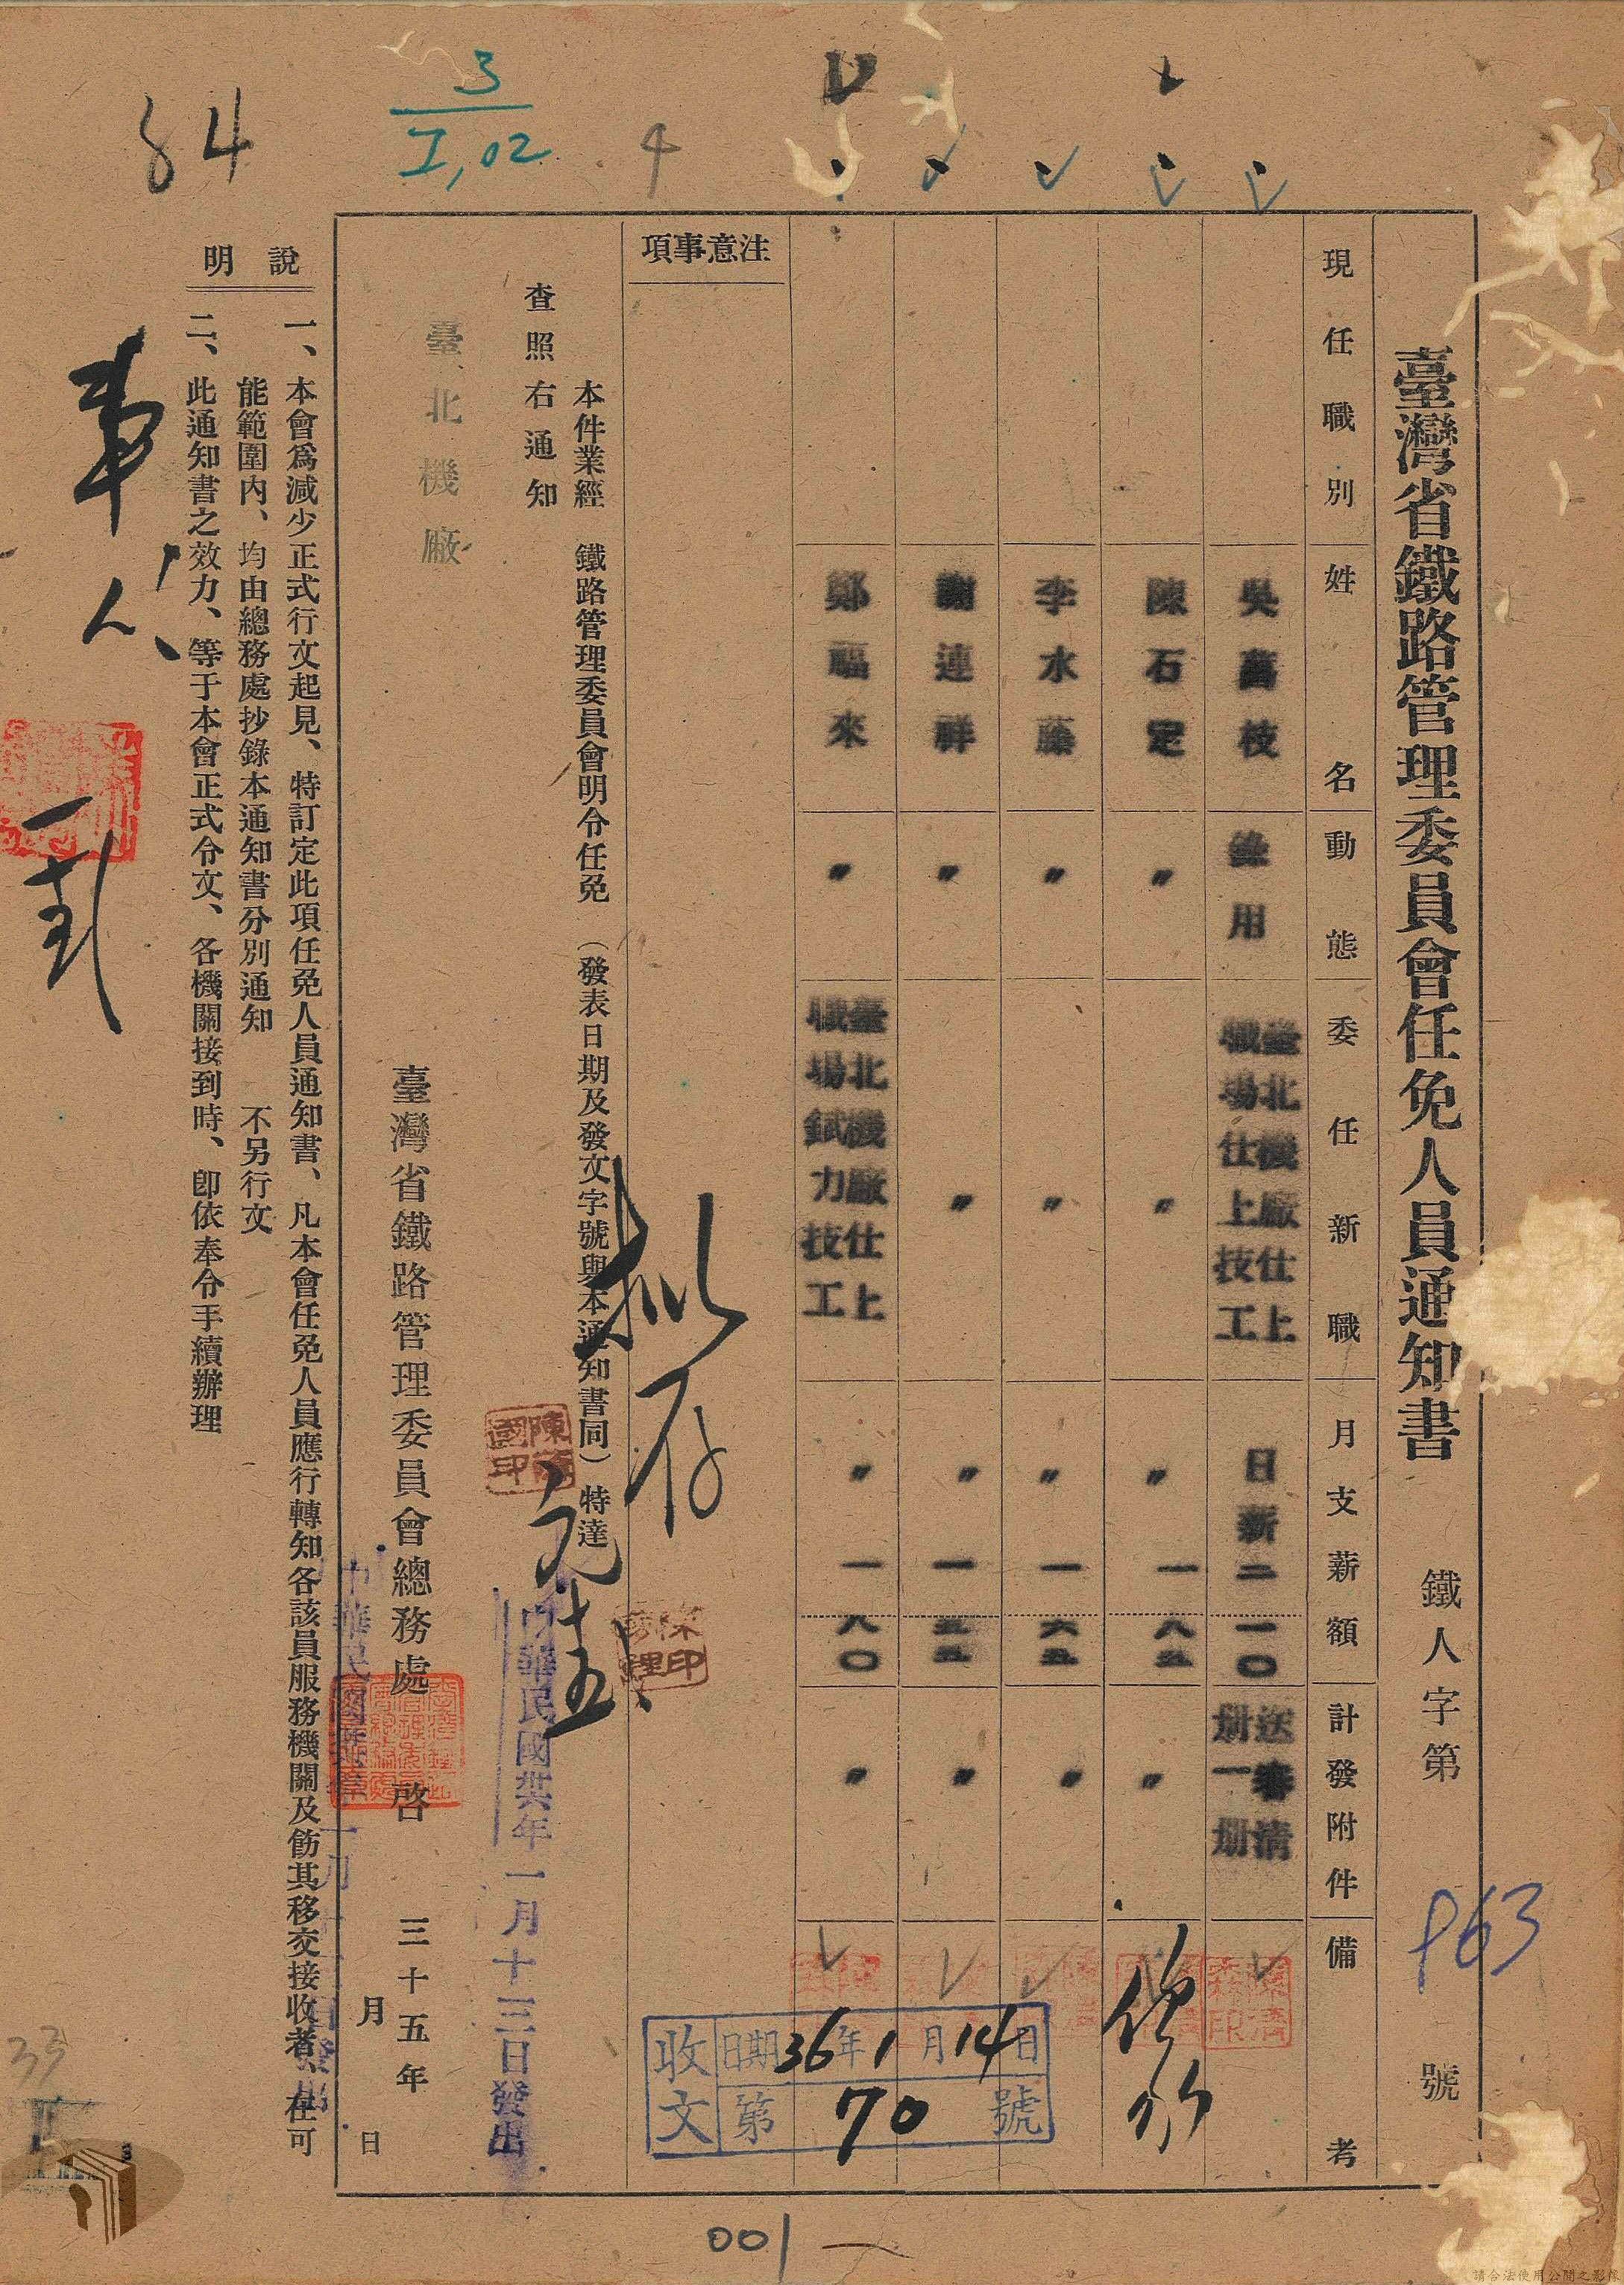 臺灣省鐵路管理委員會任免人員通知書
鐵人字第 963 號
現任職別
姓名
動態
委任新職
月支薪額
計發附件
備考
吳萬枝
錄用
臺北機廠仕上
職場仕上技工
日薪二一〇
送審清
册一册
陳石定
〃
〃
〃
一八五
〃
李水藤
〃
〃
〃
一六五
〃
謝連祥
〃
〃
〃
一五五
〃
鄭福來
〃
臺北機廠仕上
職場鉽力技工
〃
一八〇
〃
注意事項
批存
元、十五
本件業經 鐵路管理委員會明令任免 (發表日期及發文字號與本通知書同) 特達
查照右通知
中華民國卅六年一月十三日發出
臺北機廠
臺灣省鐵路管理委員會總務處 啓 三十五年 月 日
說明
一、本會爲減少正式行文起見、特訂定此項任免人員通知書、凡本會任免人員應行轉知各該員服務機關及飭其移交接收者、在可
能範圍內、均由總務處抄錄本通知書分別通知 不另行文
二、此通知書之效力、等于本會正式令文、各機關接到時、卽依奉令手續辦理
收文 日期 36年1月14日
第 70 號
陳印
84
3
I,02
4
33
001
請合法使用公開之影像